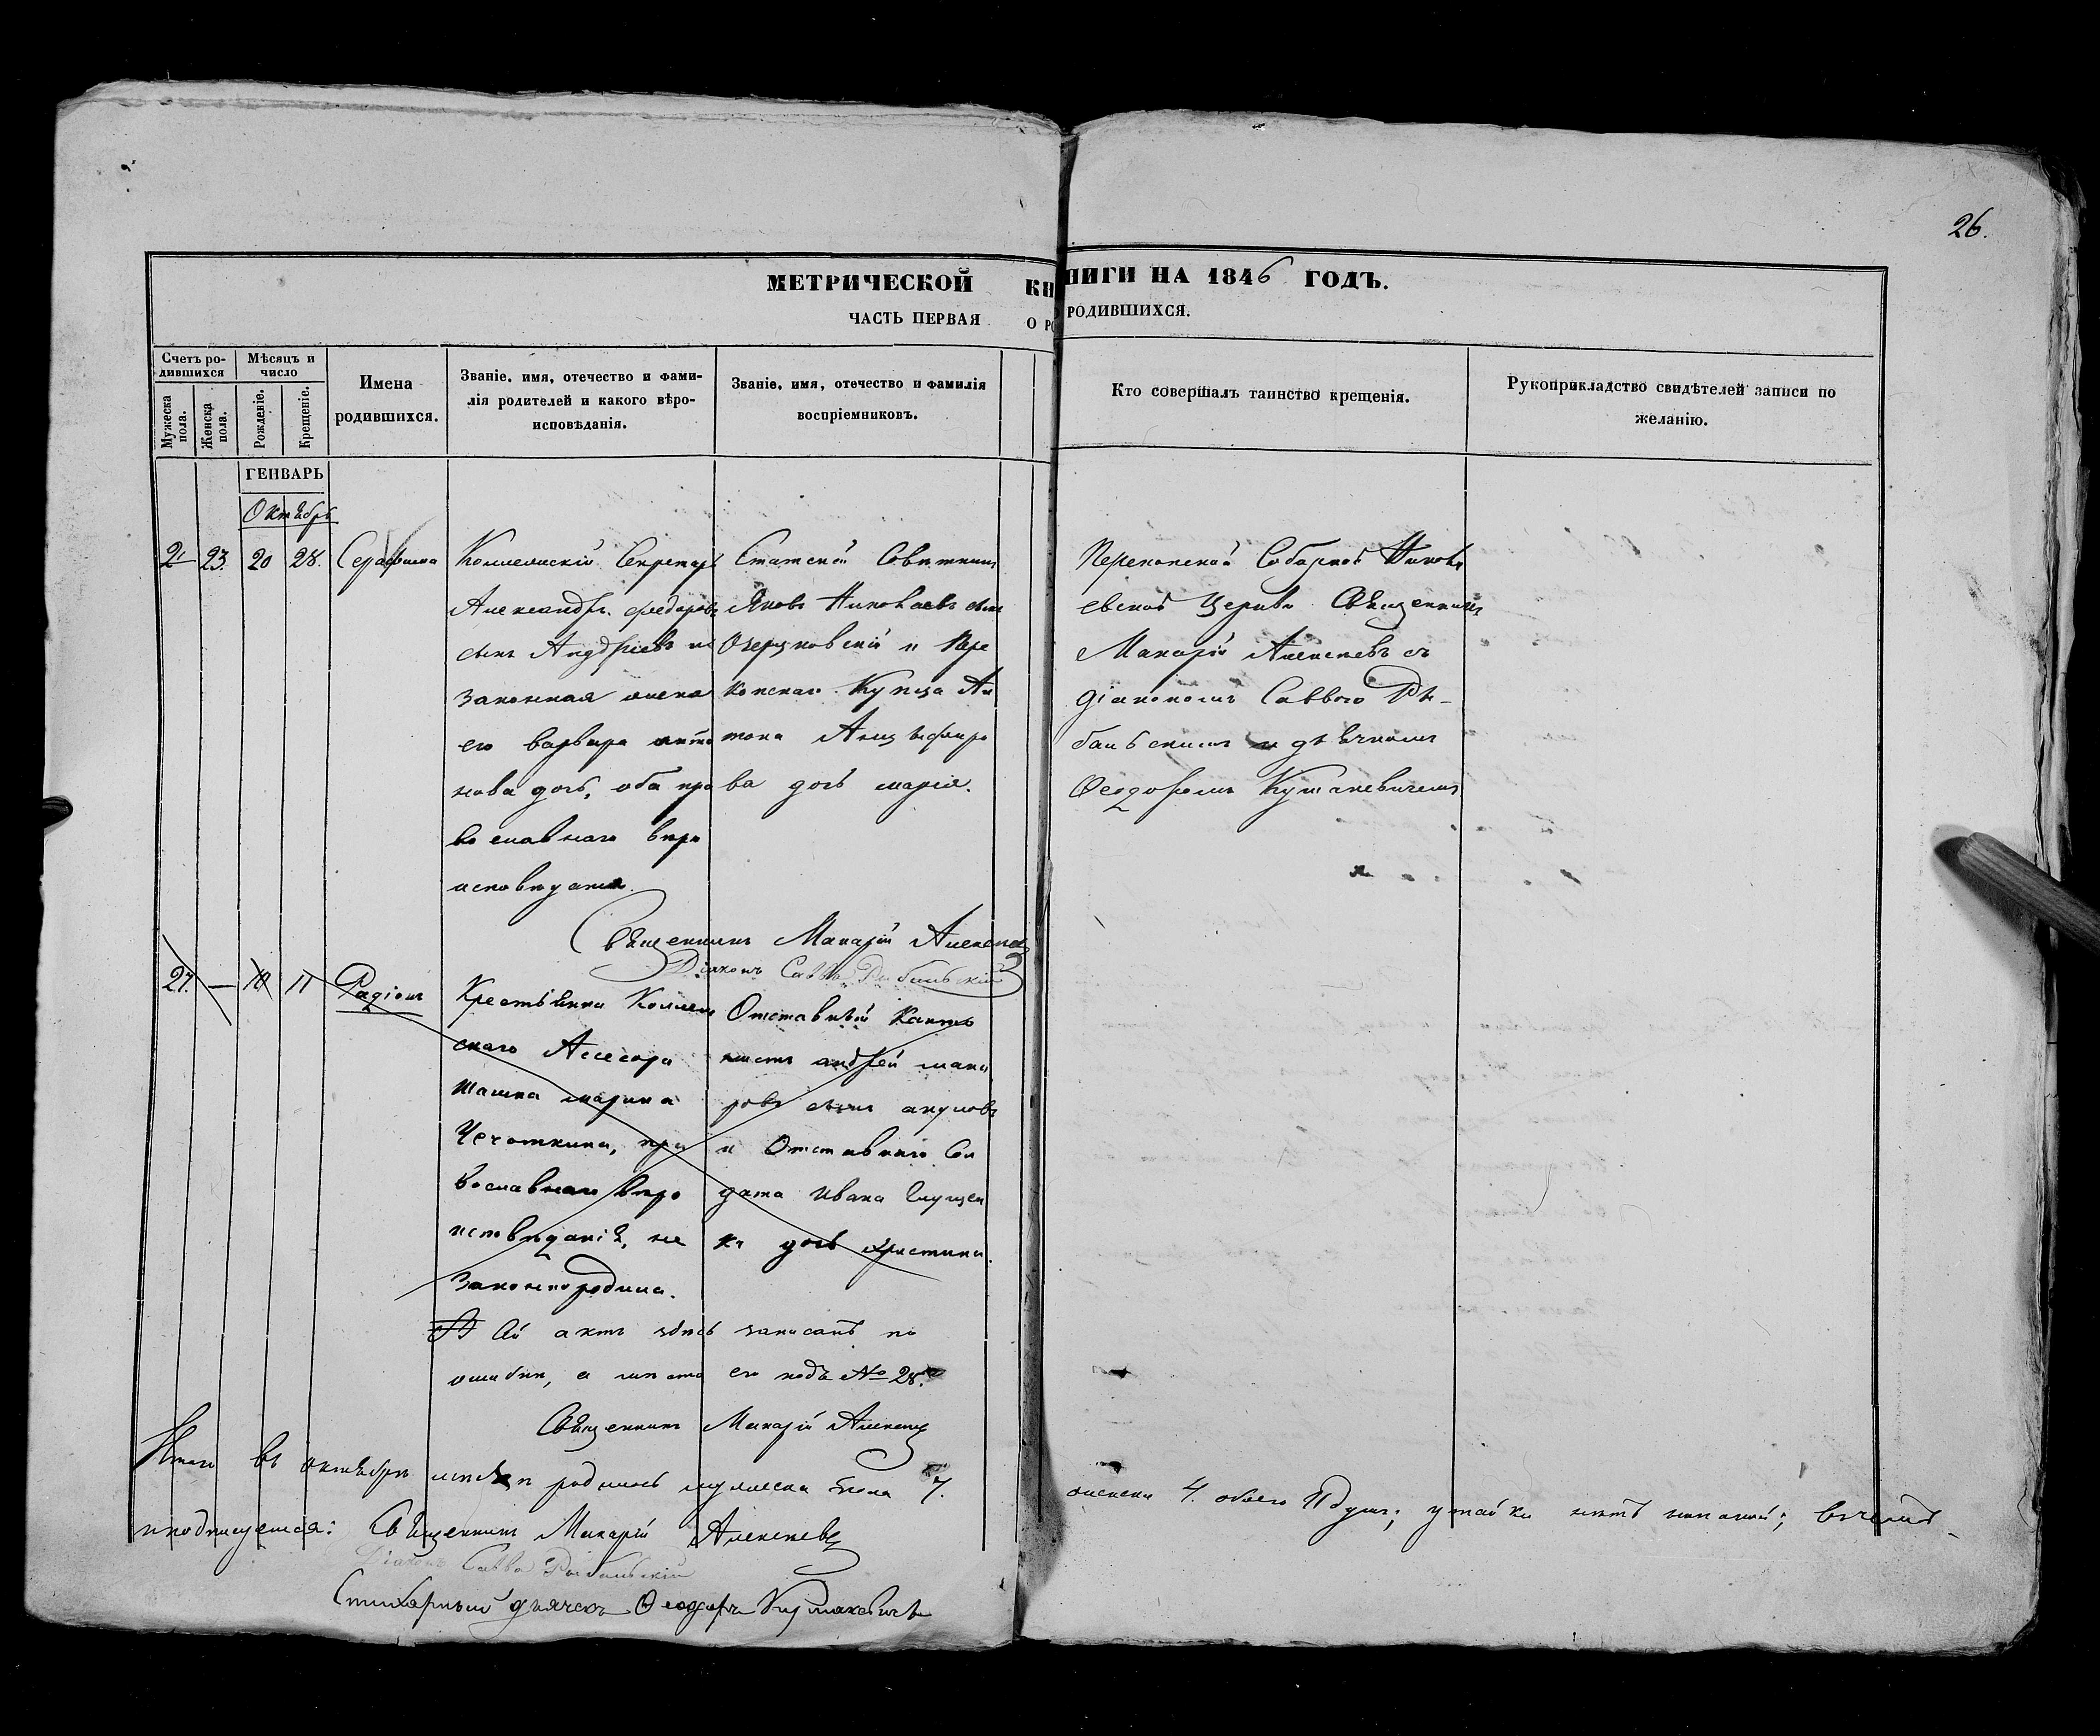 26.
МЕТРИЧЕСКОЙ КНИГИ НА 1846 ГОДЪ.
ЧАСТЬ ПЕРВАЯ О РОДИВШИХСЯ.
Счетъ ро-
дившихся
Мужеска пола.
Женска пола.
Мѣсяцъ и
число
Рожденіе.
Крещеніе.
Имена
родившихся.
Званіе, имя, отечество и фами-
лія родителей и какого вѣро-
исповѣданія.
Званіе, имя, отечество и фамилія
воспріемниковъ.
Кто совершалъ таинство крещенія.
Рукоприкладство свидѣтелей записи по
желанію.
ГЕНВАРЬ
Октябрь
23 20 28. Серафима
Коллежскій Секретарь
Александръ Федоровъ
сынъ Андріевъ и
законная жена
его Варвара Анто
нова дочь, оба пра
во славнаго вѣро
исповѣданія.
Статскій Совѣтникъ
Яковъ Николаевъ сынъ
и Пере
копскаго Купца Ан
тона
ва дочь Марія.
Перекопской Соборной Никола
евской Церкви Священникъ
Макарій Алексѣевъ съ
діакономъ Саввою Ры-
бальскимъ и дьячкомъ
Феодоромъ
Священникъ Макарій Алексѣевъ
Діаконъ Савва Рыбальскій
27. — 10 11 Радіонъ
Крестьянки Коллеж
скаго Ассесора
Марина
Чечоткина, пра
вославнаго вѣро
исповѣданія, не
законнородила.
Отставный Канто
нистъ Андрей Мака
ровъ сынъ
и Отставнаго Сол
дата Ивана
ка дочь Христина
Сій актъ здѣсь записанъ по
ошибки, а мѣсто его подъ № 28.
Священникъ Макарій Алексѣевъ
Итого въ октябрѣ мѣсяцѣ родилось мужеска пола 7. женска 4. обоего 11 душъ; утайки нѣтъ никакой; въ чемъ
и подписуемся: Священникъ Макарій Алексѣевъ
Діаконъ Савва Рыбальскій
Стихарный дьячекъ Феодоръ